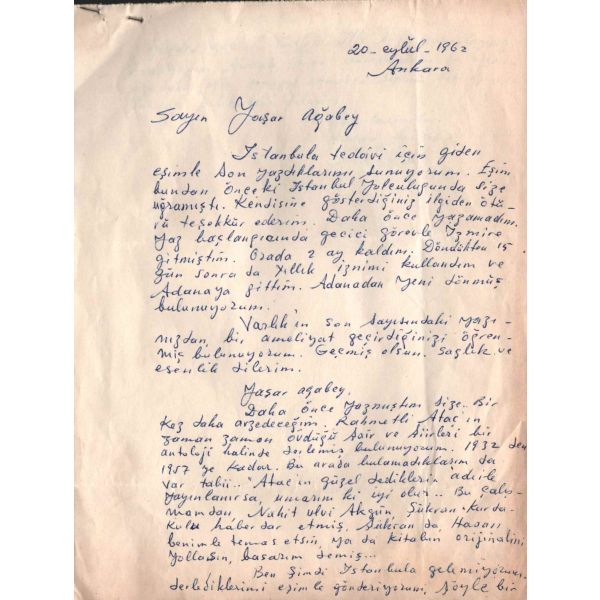 20-eylül-1962
Ankara
Sayın Yaşar Ağabey
Istanbula tedavi için giden
eşimle son yazdıklarımı sunuyorum. Eşim
bundan önceki Istanbul yolculuğunda size
uğramıştı. Kendisine gösterdiğiniz ilgiden ötü-
rü teşekkür ederim. Daha önce yazamadım.
Yaz başlangıcında geçici görevle Izmire
gitmiştim. Orada 2 ay kaldım. Döndükten 15
gün sonra da yıllık iznimi kullandım ve
Adanaya gittim. Adanadan yeni dönmüş
bulunuyorum.
Varlık'ın son sayısındaki yazı-
nızdan, bir ameliyat geçirdiğinizi öğren-
miş bulunuyorum. Geçmiş olsun. Sağlık ve
esenlik dilerim.
Yaşar ağabey,
Daha önce yazmıştım size. Bir
kez daha arzedeceğim. Rahmetli Ataç'ın
zaman zaman övdüğü şair ve şiirleri bir
antoloji halinde derlemiş bulunuyorum. 1932 den
1957 ye kadar. Bu arada bulamadıklarım da
var tabii.. "Ataç'ın güzel dedikleri" adiyle
yayınlanırsa, umarım ki iyi olur.. Bu çalış-
mamdan, Nahit Ulvi Akgün, Şükran Kurda-
kulu haberdar etmiş, Şükran da, Hasan
benimle temas etsin, ya da kitabın orijinalini
yollasın, basarım demiş...
Ben şimdi Istanbula gelemiyorum,
derlediklerimi eşimle gönderiyorum, şöyle bir